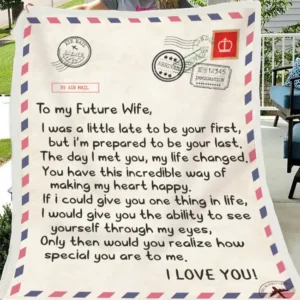 AIR MAIL
BY AIR MAIL
To my Future Wife,
I was a little late to be your first,
but i'm prepared to be your last.
The day I met you, my life changed.
You have this incredible way of
making my heart happy.
If i could give you one thing in life,
I would give you the ability to see
yourself through my eyes,
Only then would you realize how
special you are to me.
I LOVE YOU!